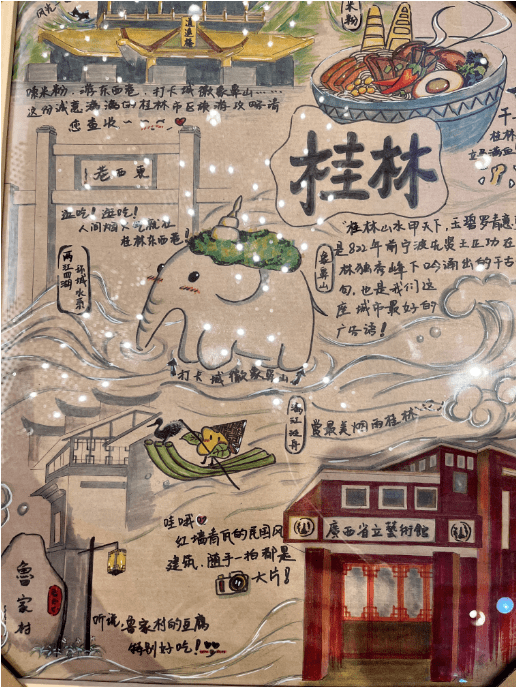 风光
米粉
逍遥楼
嗦米粉、游东西巷、打卡城徽象鼻山……
这份诚意满满的桂林市区旅游攻略请
您查收～
桂林
老西東
逛吃！逛吃！
人间烟火气就让
桂林东西巷！
两江四湖
环城水系
象鼻山
"桂林山水甲天下，玉碧罗青意
是822年前宁波先贤王正功在
林独秀峰下吟诵出的千古
句，也是我们这
座城市最好的
广告语！
打卡城徽象鼻山
漓江泛舟
赏最美烟雨桂林
哇哦
红墙青瓦的民国风
建筑，随手一拍都是
大片！
廣西省立藝術館
魯家村
听说，鲁家村的豆腐
特别好吃！